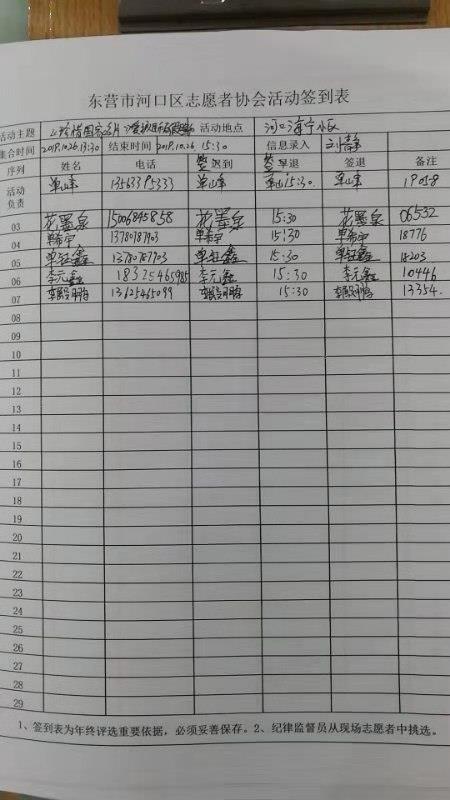 东营市河口区志愿者协会活动签到表
活动主题 活动地点 河口海宁小区
集合时间 2019.10.26.13:30 结束时间 2019.10.26. 15:30 信息录入
序列 姓名 电话 签到 早退 签退 备注
活动负责 单峰 13563395333 单峰 15:30. 单峰 19058
03 花墨泉 15006845858 花墨泉 15:30 花墨泉 06532
04 单希宁 13780787903 单希宁 15:30 单希宁 18776
05 单钰鑫 13780787903 单钰鑫 15:30 单钰鑫 18203
06 李元鑫 18325465985 李元鑫 15:30 李元鑫 10446
07 13125465099 15:30 13354.
08
09
10
11
12
13
14
15
16
17
18
19
20
21
22
23
24
25
26
27
28
29
1、签到表为年终评选重要依据，必须妥善保存。2、纪律监督员从现场志愿者中挑选。